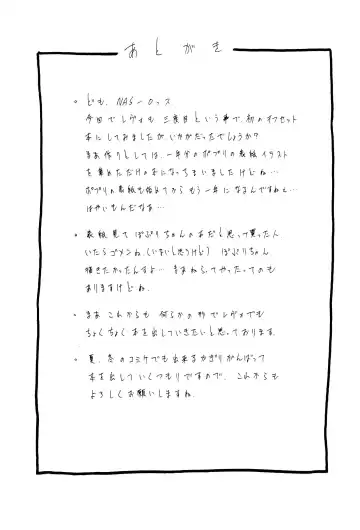 あとがき
。ども、NAS-ロッス
今回でレヴォも三度目という事で、初のオフセット
本にしてみましたがいかがだったでしょうか?
まあ作りとしては、一年分のポプリの表紙イラスト
を集めただけの本になっちまいましたけどね…
ポプリの表紙も始めてからもう一年になるんですねぇ…
はやいもんだなぁ…
。表紙見てぽぷりちゃんの本だと思って買った人
いたらゴメンね。(いないと思うけど) ぽぷりちゃん
描きたかったんすよ… まあねらってやったってのも
ありますけどね。
。まあこれからも何らかの形でレヴォでも
ちょくちょく本を出していきたいと思っております。
。夏、冬のコミケでも出来るかぎりがんばって
本を出していくつもりですので、これからも
よろしくお願いしますね。